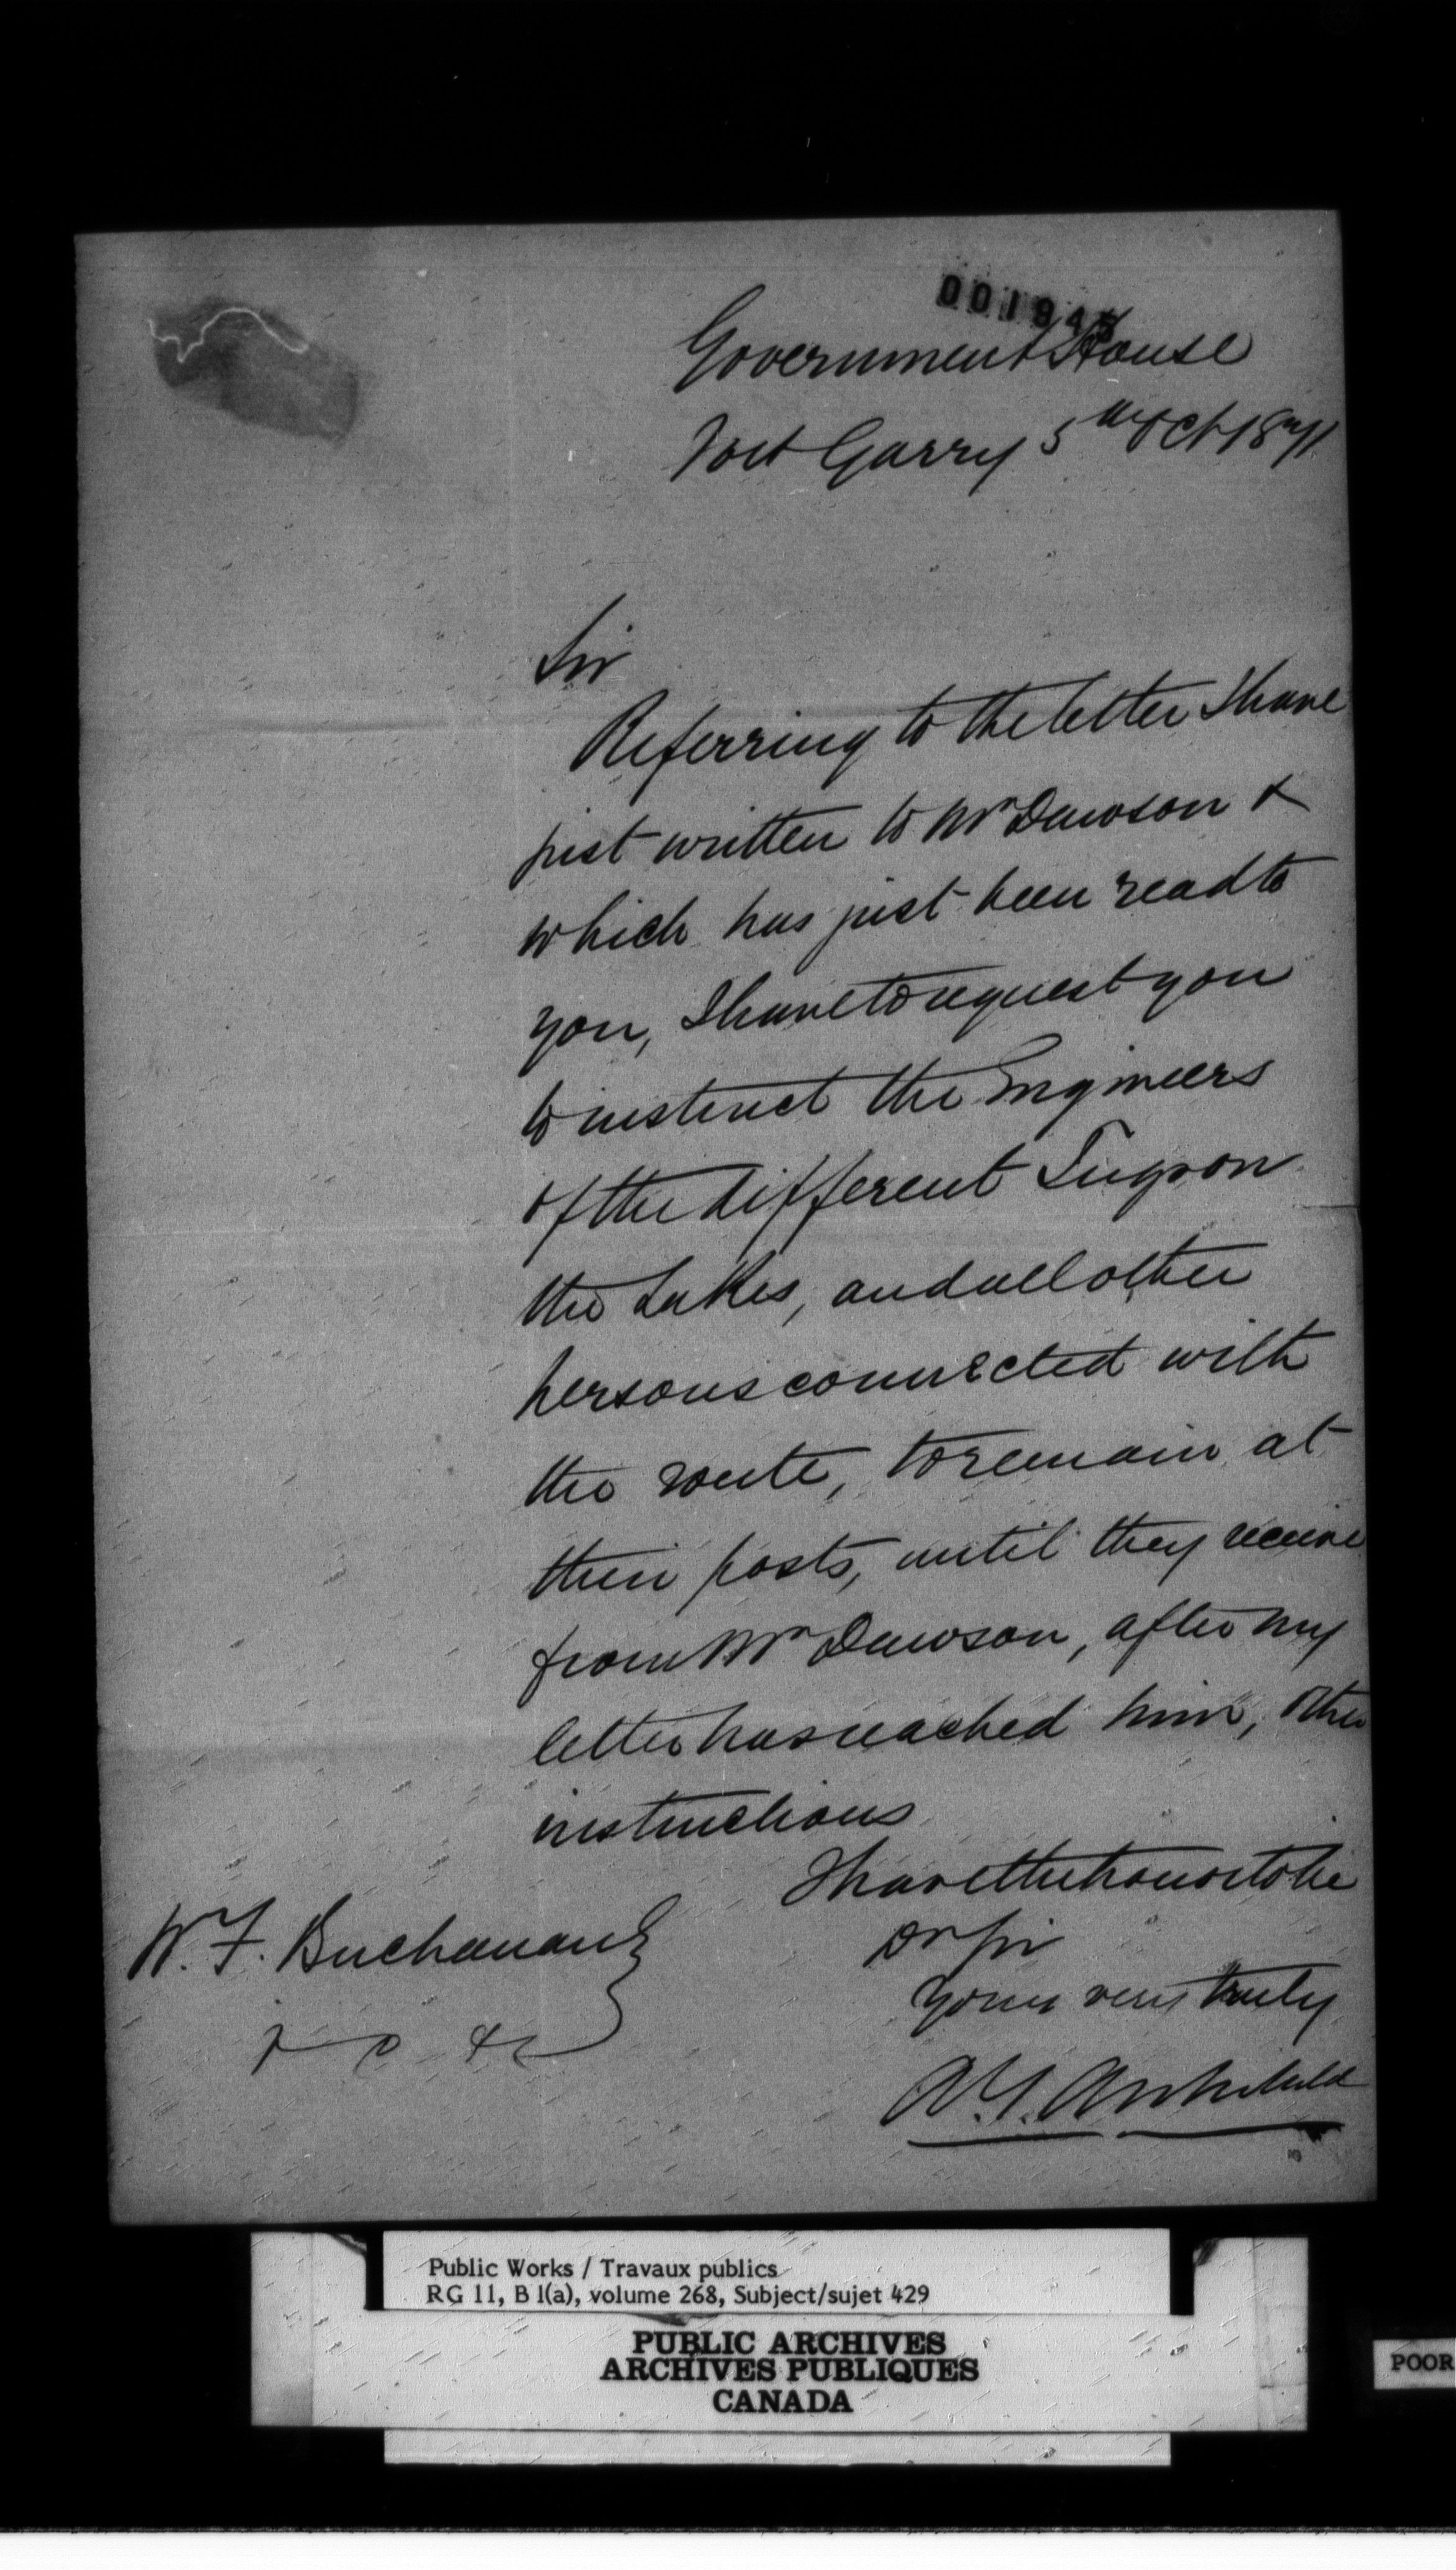 001945
Government House
Fort Garry 5th Oct 1871
Sir
Referring to the letter I have
just written to Mr Dawson &
which has just been read to
you, I have to request you
to instruct the Engineers
of the different Tugs on
the Lakes, and all other
persons connected with
the route, to remain at
their posts, until they receive
from Mr Dawson, after my
letter has reached him, other
instructions
I have the honor to be
Dr Sir
Yours very truly
A. G. Archibald
W. F. Buchanan
&c
Public Works / Travaux publics
RG 11, B 1(a), volume 268, Subject/sujet 429
PUBLIC ARCHIVES
ARCHIVES PUBLIQUES
CANADA
POOR